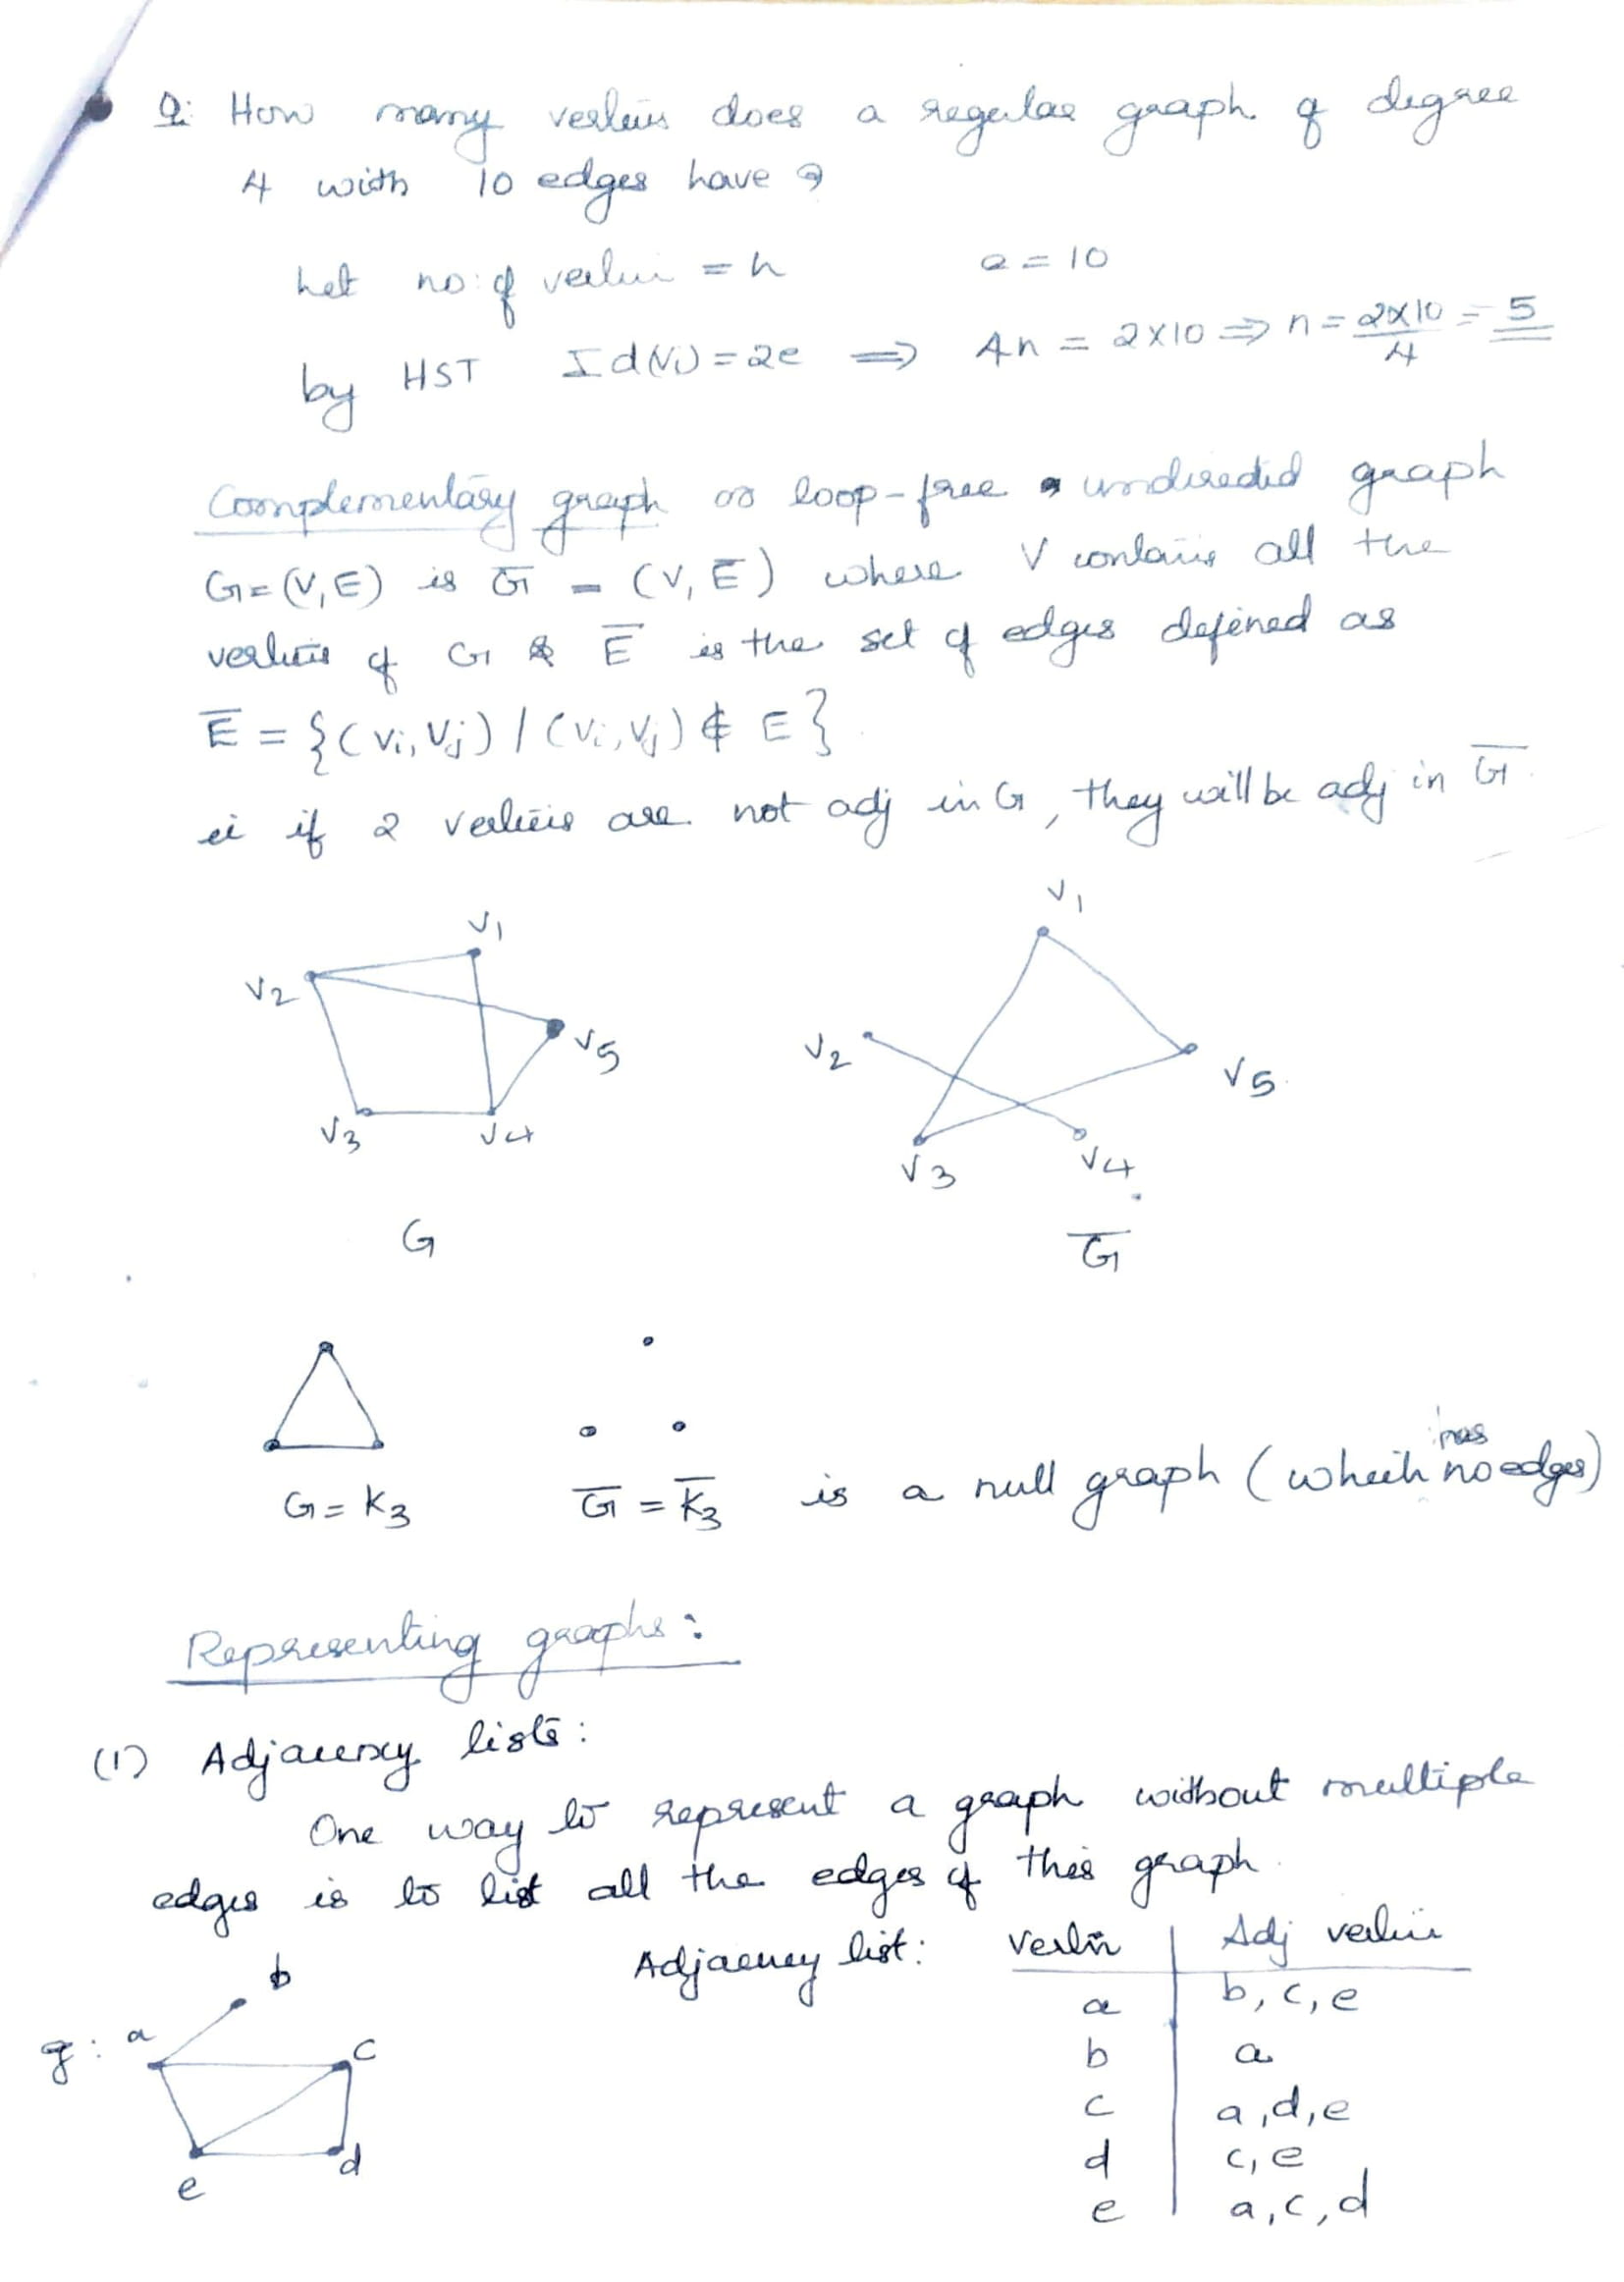 Q: How many vertices does a regular graph of degree
4 with 10 edges have ?
Let no: of vertices = n e = 10
by HST Σ d(Vi) = 2e ⟹ 4n = 2×10 ⟹ n = 2×10/4 = 5
Complementary graph or loop-free undirected graph
G = (V, E) is G̅ = (V, E̅) where V contains all the
vertices of G & E̅ is the set of edges defined as
E̅ = {(vi, vj) / (vi, vj) ∉ E}
ie if 2 vertices are not adj in G, they will be adj in G̅.
V1 V2 V3 V4 V5
V1 V2 V3 V4 V5
G G̅
G = K3 G̅ = K̅3 is a null graph (which has no edges)
Representing graphs:
(1) Adjacency lists:
One way to represent a graph without multiple
edges is to list all the edges of this graph.
Adjacency list: Vertex | Adj vertices
a | b, c, e
b | a
c | a, d, e
d | c, e
e | a, c, d
g: a b c d e